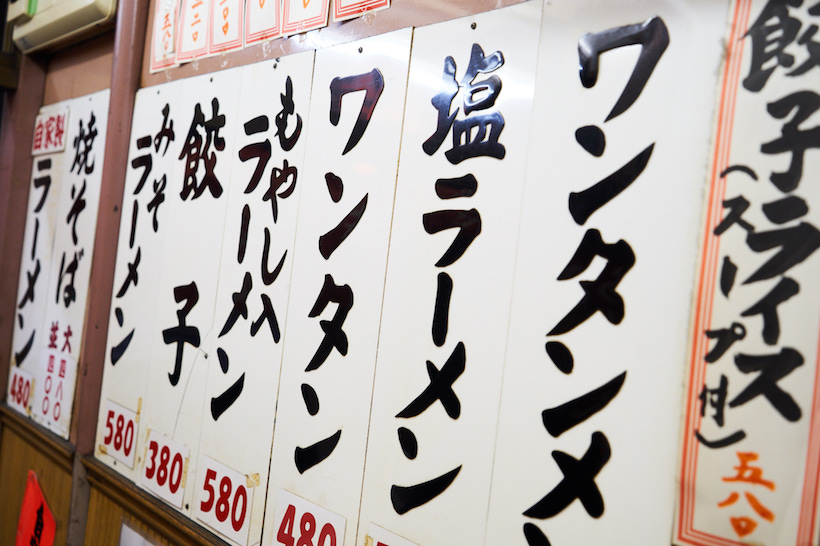 餃子ライス
（スープ付）
五八〇
ワンタンメ
塩ラーメン
ワンタン
480
もやし入
ラーメン
580
餃子
380
みそ
ラーメン
580
焼そば
大四八〇
並四〇〇
自家製
ラーメン
480